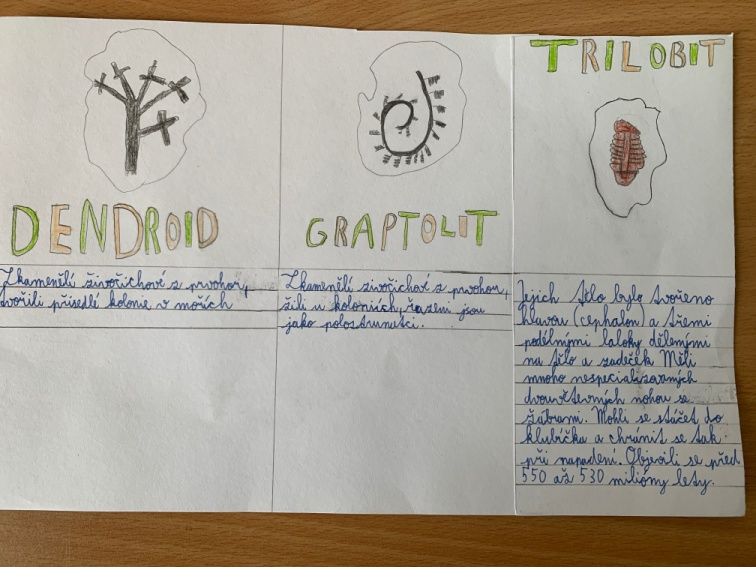 DENDROID
Zkamenělí živočichové z prvohor,
tvořili přisedlé kolonie v mořích
GRAPTOLIT
Zkamenělí živočichové z prvohor,
žili v koloniích, řazem jsou
jako polostrunatci.
TRILOBIT
Jejich tělo bylo tvořeno
hlavou (cephalon) a třemi
podélnými laloky dělenými
na tělo a zadeček Měli
mnoho nespecializovaných
dvouvětevných nohou se
žábrami. Mohli se stáčet do
klubíčka a chránit se tak
při napadení. Objevili se před
550 až 530 milióny lety.